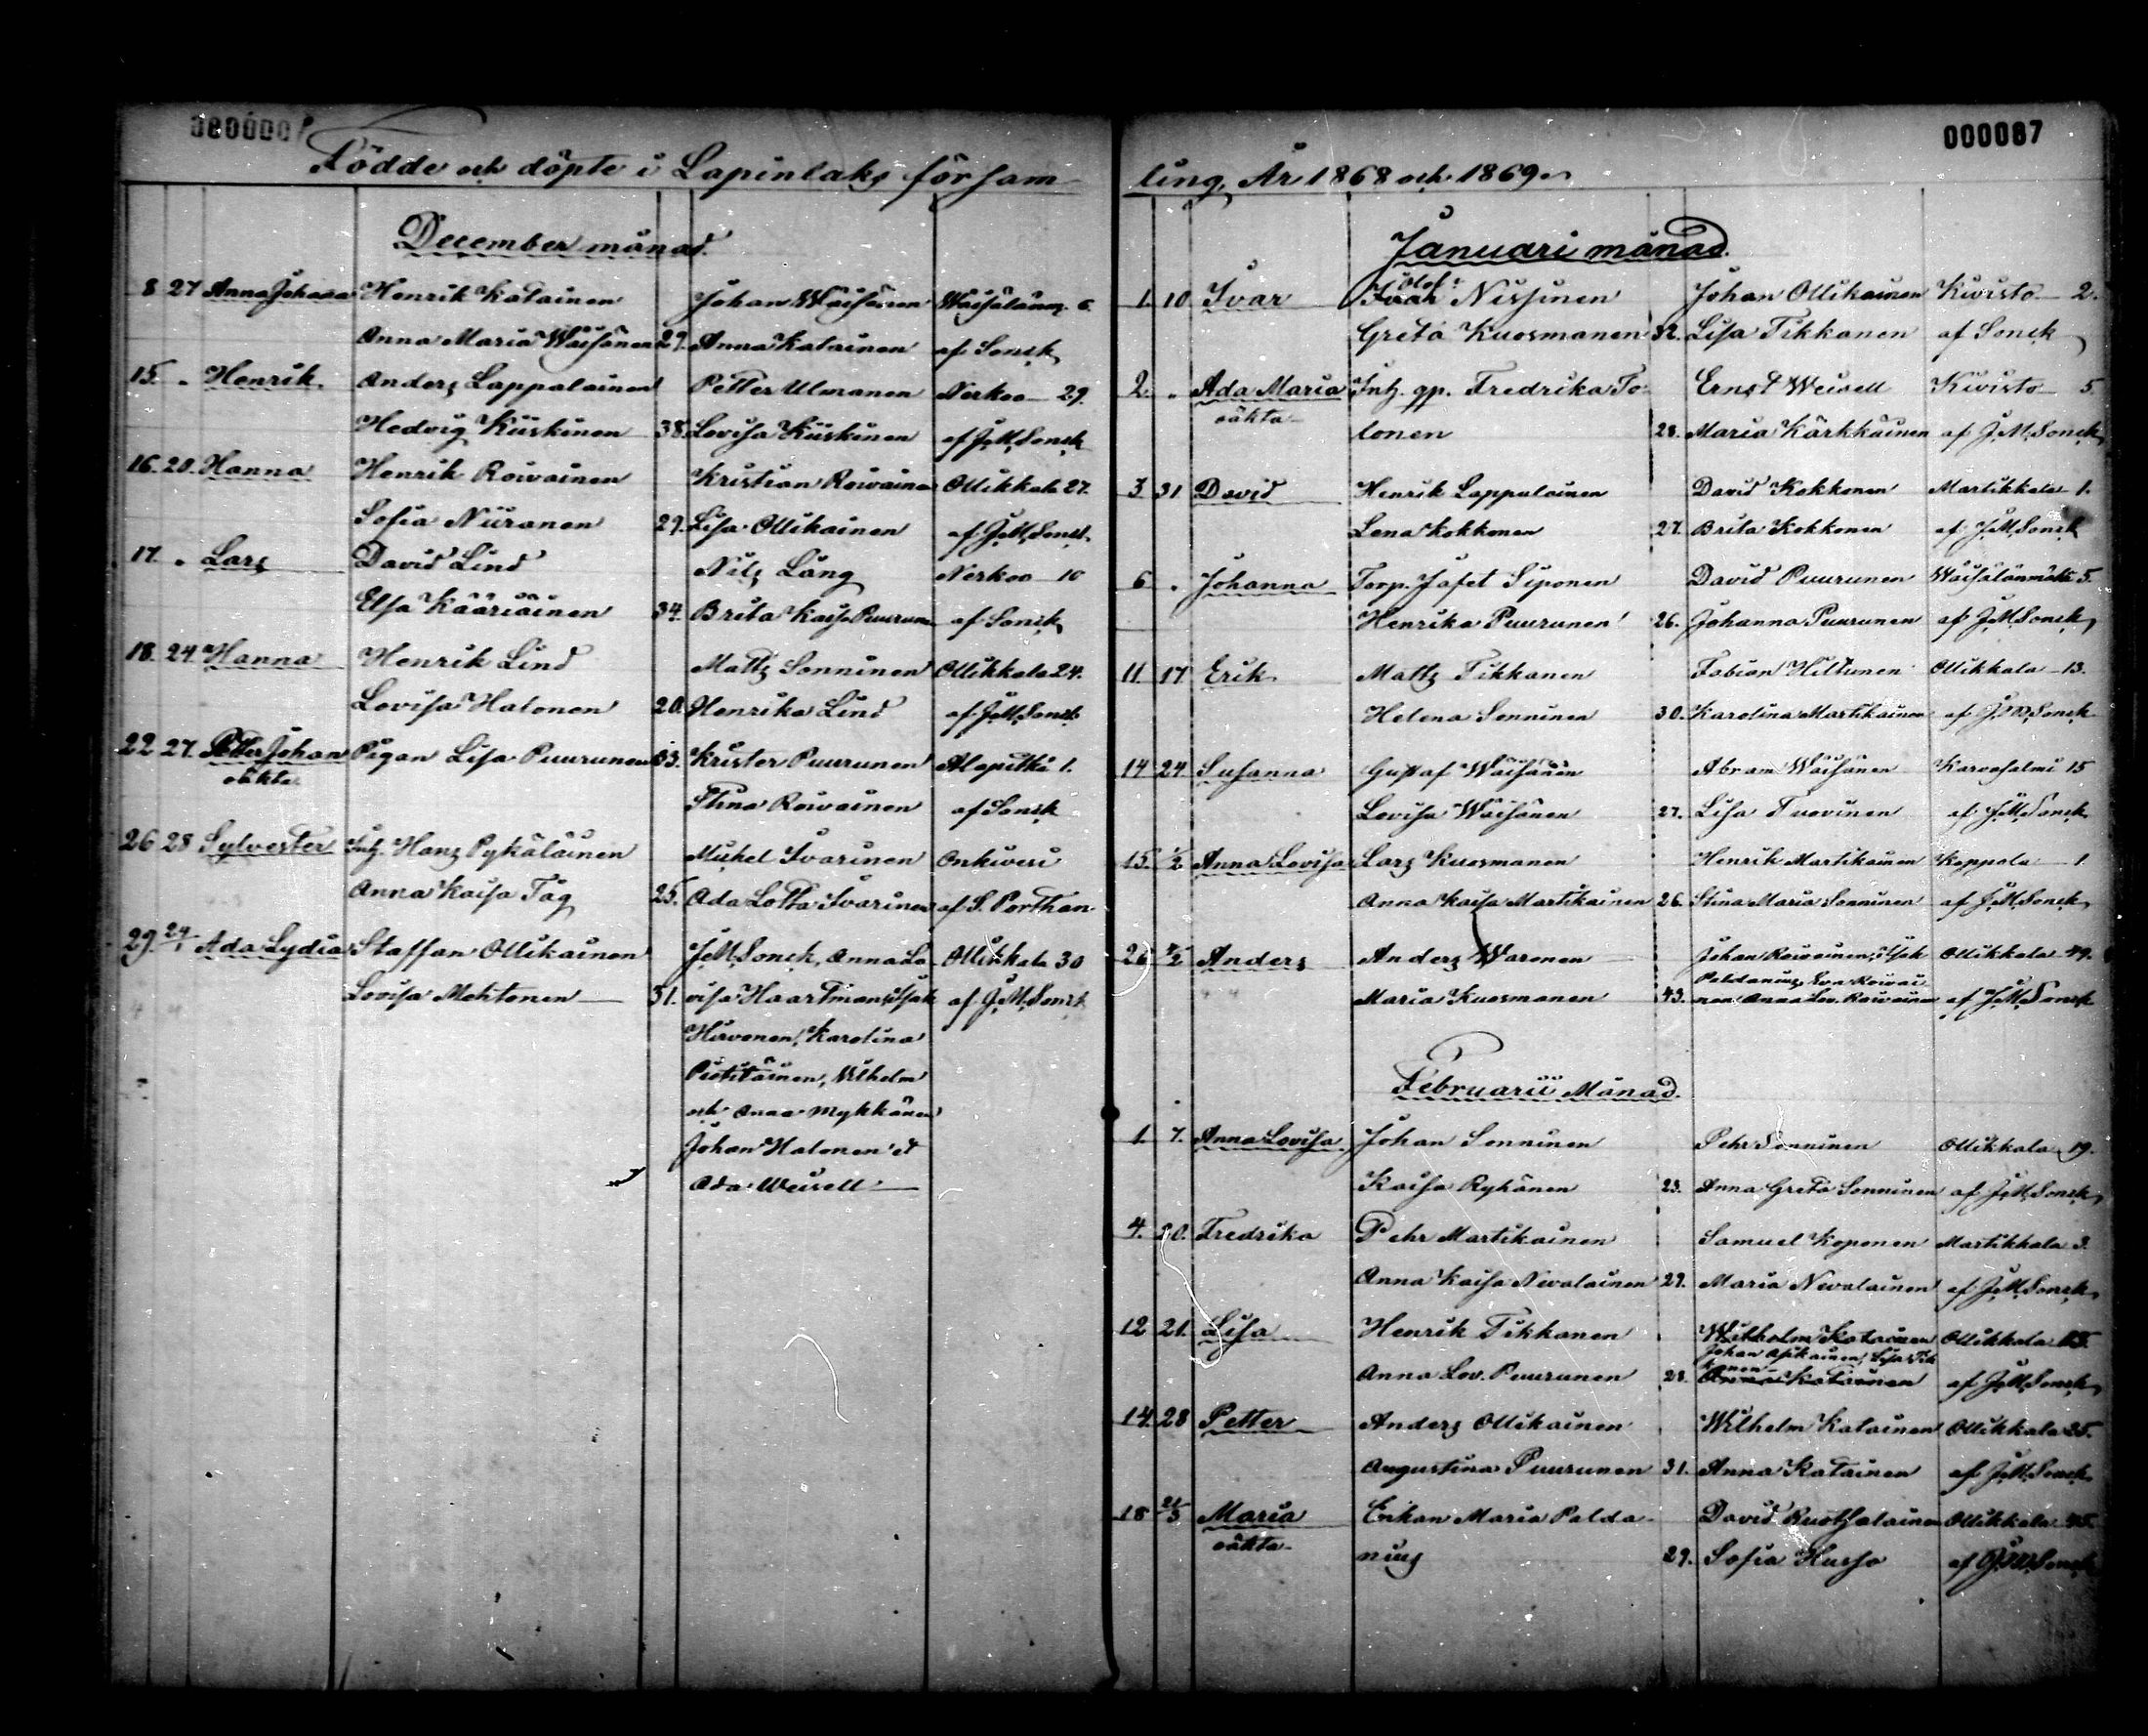 000087
Födde och döpte i Lapinlaks försam-
ling, År 1868 och 1869.
December månad.
8 27 Anna Johana Henrik Katainen Johan Wäisänen Wäisälänm. 6.
Anna Maria Wäisänen 29. Anna Katainen af Sonck
15. " Henrik Anders Lappalainen Petter Ulmanen Nerkoo 29.
Hedvig Kiiskinen 38. Lovisa Kiiskinen af J.M.Sonck
16. 20. Hanna Henrik Roivainen Kristian Roivainen Ollikkala 27.
Sofia Niiranen 29. Lisa Ollikainen af J.M.Sonck
17. " Lars David Lind Nils Lång Nerkoo 10
Elsa Kääriäinen 34. Brita Kaisa Puurunen af Sonck
18. 24. Hanna Henrik Lind Matts Sonninen Ollikkala 24.
Lovisa Halonen 20. Henrika Lind af J.M.Sonck
22 27. Petter Johan Pigan Lisa Puurunen 33. Krister Puurunen Alapitkä 1.
oäkta Stina Roivainen af Sonck
26 28 Sylvester Inh. Hans Pykäläinen Mickel Ivarinen Onkivesi
Anna Kaisa Tåg 25. Ada Lotta Ivarinen af S. Porthan
29. 24/1 Ada Lydia Staffan Ollikainen J.M.Sonck, Anna Lo- Ollikkala 30
Lovisa Mehtonen 31. visa Haartman, Isak af J.M.Sonck
Hirvonen, Karolina
Pietiläinen, Wilhelm
och Anna Mykkänen
Johan Halonen et
Ada Weisell
Januari månad.
Olof
1. 10 Ivar Ivar Nissinen Johan Ollikainen Kivisto 2.
Greta Kuosmanen 32. Lisa Tikkanen af Sonck
2. " Ada Maria Inh. qp. Fredrika To- Ernst Weisell Kivisto 5
oäkta lonen 28. Maria Kärkkäinen af J.M.Sonck
3 31 David Henrik Lappalainen David Kokkonen Martikkala 1.
Lena Kokkonen 27. Brita Kokkonen af J.M.Sonck
6 " Johanna Torp. Jafet Siponen David Puurunen Wäisälänmäki 5.
Henrika Puurunen 26. Johanna Puurunen af J.M.Sonck
11. 17 Erik Matts Tikkanen Fabian Hiltunen Ollikkala 13.
Helena Sonninen 30. Karolina Martikainen af J.M.Sonck
14 24 Susanna Gustaf Wäisänen Abram Wäisänen Karvasalmi 15
Lovisa Wäisänen 27. Lisa Tuovinen af J.M.Sonck
15. 1/2 Anna Lovisa Lars Kuosmanen Henrik Martikainen Keppola 1.
Anna Kaisa Martikainen 26. Stina Maria Sonninen af J.M.Sonck
26 4/2 Anders Anders Waronen Johan Roivainen, Isak Ollikkala 49.
Paldanius, Eva Roivai
Maria Kuosmanen 43. nen Anna Lov. Roivainen af J.M.Sonck
Februarii Månad.
1. 7. Anna Lovisa Johan Sonninen Pehr Sonninen Ollikkala 19.
Kaisa Ryhänen 23. Anna Greta Sonninen af J.M.Sonck
4. 20. Fredrika Pehr Martikainen Samuel Koponen Martikkala 3.
Anna Kaisa Nevalainen 29. Maria Nevalainen af J.M.Sonck
12 21. Lisa Henrik Tikkanen Wilhelm Katainen Ollikkala 13.
Johan Asikainen, Lisa Tik
kanen
Anna Lov. Puurunen 28. Anna Katainen af J.M.Sonck
14. 28 Petter Anders Ollikainen Wilhelm Katainen Ollikkala 25.
Augustina Puurunen 31. Anna Katainen af J.M.Sonck
18 21/3 Maria Enkan Maria Palda- David Ruotsalainen Ollikkala 45.
oäkta nius 29. Sofia Husso af J.M.Sonck